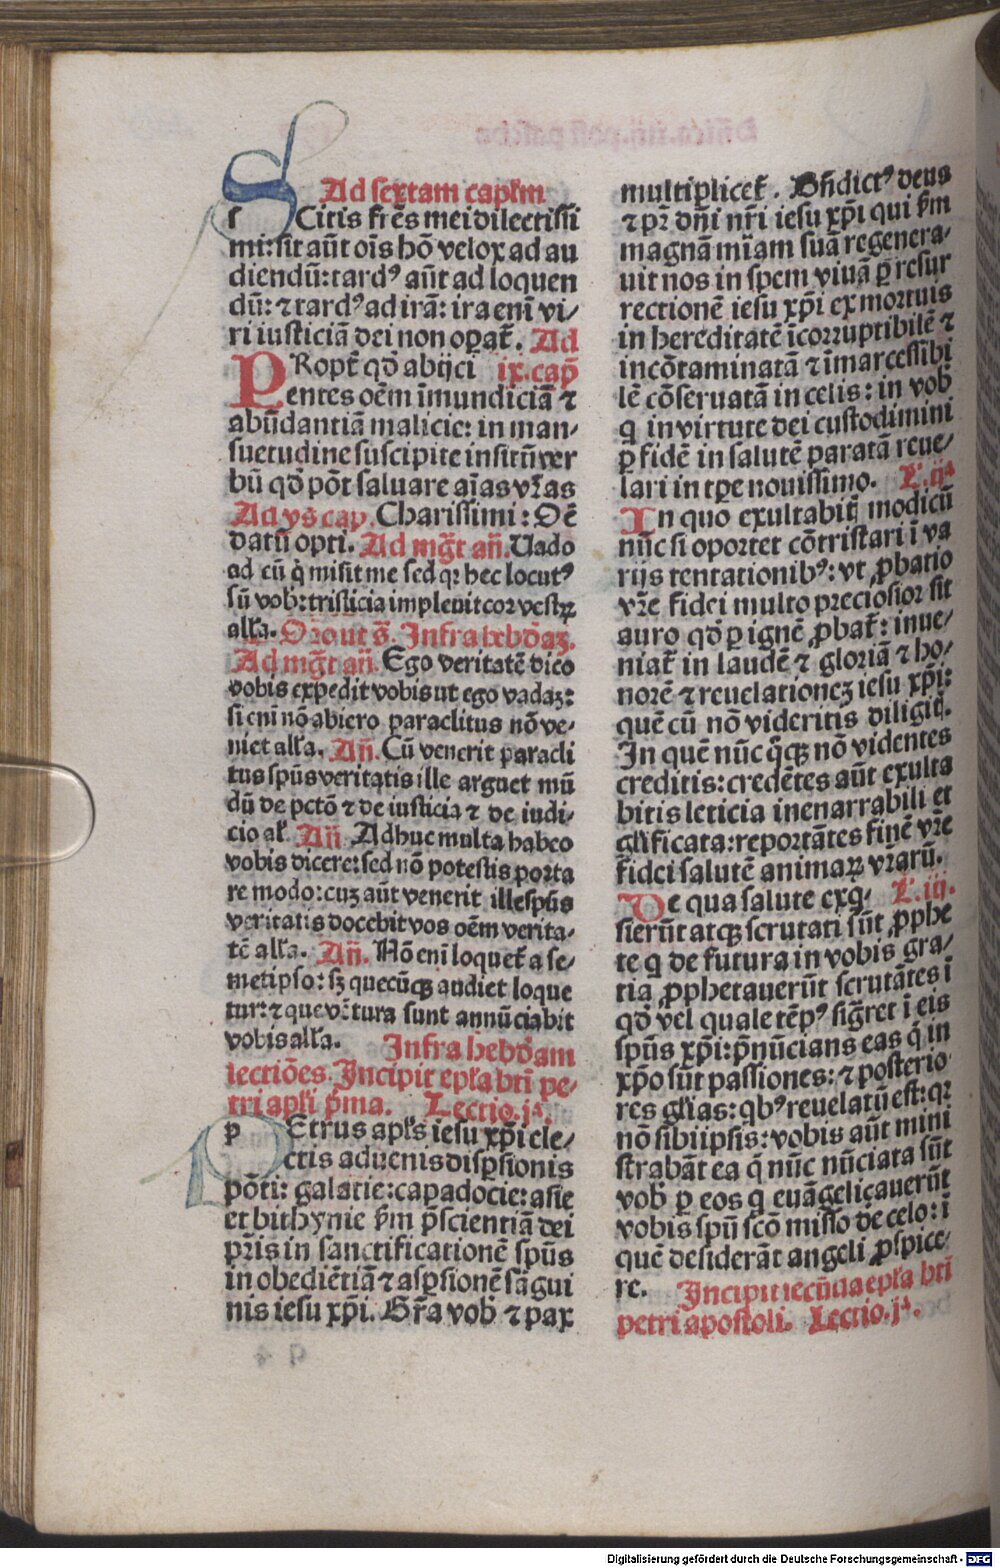 Ad sextam capłm
SCitis fr̄es mei dilectissi
mi: sit aūt oīs hō velox ad au
diendū: tardꝰ aūt ad loquen
dū: ⁊ tardꝰ ad irā: ira enī vi/
ri iusticiā dei non oꝑat̄. Ad
PRopt̄ qď abijci ix. cap̄
entes oēm īmundiciā ⁊
abūdantiā malicie: in man/
suetudine suscipite insitū ver
bū qď pōt saluare aīas vr̄as
Ad vs cap. Charissimi: Oē
datū opti. Ad mgt̄ an̄. Uado
ad cū q̇ misit me sed qꝛ hec locutꝰ
sū vob: tristicia impleuit cor vestꝝ
alła. Oro ut s̄. Infra hebdaꝫ.
Ad mgt̄ an̄. Ego veritatē dico
vobis expedit vobis ut ego vadaꝫ:
si eni nō abiero paraclitus nō ve/
niet alła. An̄. Cū venerit paracli
tus spūs veritatis ille arguet mū
dū de pctō ⁊ de iusticia ⁊ de iudi/
cio ał An̄ Adhuc multa habeo
vobis dicere: sed nō potestis porta
re modo: cuꝫ aūt venerit ille spūs
veritatis docebit vos oēm verita/
tē alła. An̄. Nō enī loquet̄ a se/
metipso: sꝫ quecūqꝫ audiet loque
tur: ⁊ que vētura sunt annūciabit
vobis alła. Infra hebdam
lectiōes. Incipit epła bti pe/
tri apłi p̄ma. Lectio. jᵃ.
PEtrus apłs iesu xp̄i ele/
ctis aduenis disꝑsionis
pōti: galatie: capadocie: asie
et bithynie ẜm p̄scientiā dei
pr̄is in sanctificationē spūs
in obediētiā ⁊ asꝑsionē sāgui
nis iesu xp̄i. Gr̄a vob ⁊ pax
multiplicet̄. Bn̄dictꝰ deus
⁊ pr̄ dn̄i nr̄i iesu xp̄i qui ẜm
magnā mīam suā regenera/
uit nos in spem viuā ꝑ resur
rectionē iesu xp̄i ex mortuis
in hereditatē īcorruptibilē ⁊
incōtaminatā ⁊ īmarcessibi
lē cōseruatā in celis: in vob
q̄ in virtute dei custodimini
ꝑ fidē in salutē paratā reue/
lari in tp̄e nouissimo. L̄. ijᵃ
In quo exultabitꝭ modicū
nūc si oportet cōtristari ī va
rijs tentationibꝰ: vt ꝓbatio
vr̄e fidei multo preciosior sit
auro qď ꝑ ignē ꝓbat̄: inue/
niat̄ in laudē ⁊ gloriā ⁊ ho/
norē ⁊ reuelationeꝫ iesu xp̄i:
quē cū nō videritis diligitꝭ.
In quē nūc q̊qꝫ nō videntes
creditis: credētes aūt exulta
bitis leticia inenarrabili et
głificata: reportātes finē vr̄e
fidei salutē animaꝝ vr̄arū.
De qua salute exq̇ L̄. iij.
sierūt atqꝫ scrutati sūt ꝓphe
te q̄ de futura in vobis gra/
tia ꝓphetauerūt scrutātes ī
qď vel quale tēpꝰ sigr̄et ī eis
spūs xp̄i: p̄nūcians eas q̄ in
xp̄o sūt passiones: ⁊ posterio
res głias: qbꝰ reuelatū est: qꝛ
nō sibiipsis: vobis aūt mini
strabāt ea q̄ nūc nūciata sūt
vob ꝑ eos q̄ euāgelicauerūt
vobis spū scō misso de celo: ī
quē desiderāt angeli ꝓspice/
re. Incipit secūda epła bti
petri apostoli. Lectio. jᵃ.
Digitalisierung gefördert durch die Deutsche Forschungsgemeinschaft - DFG